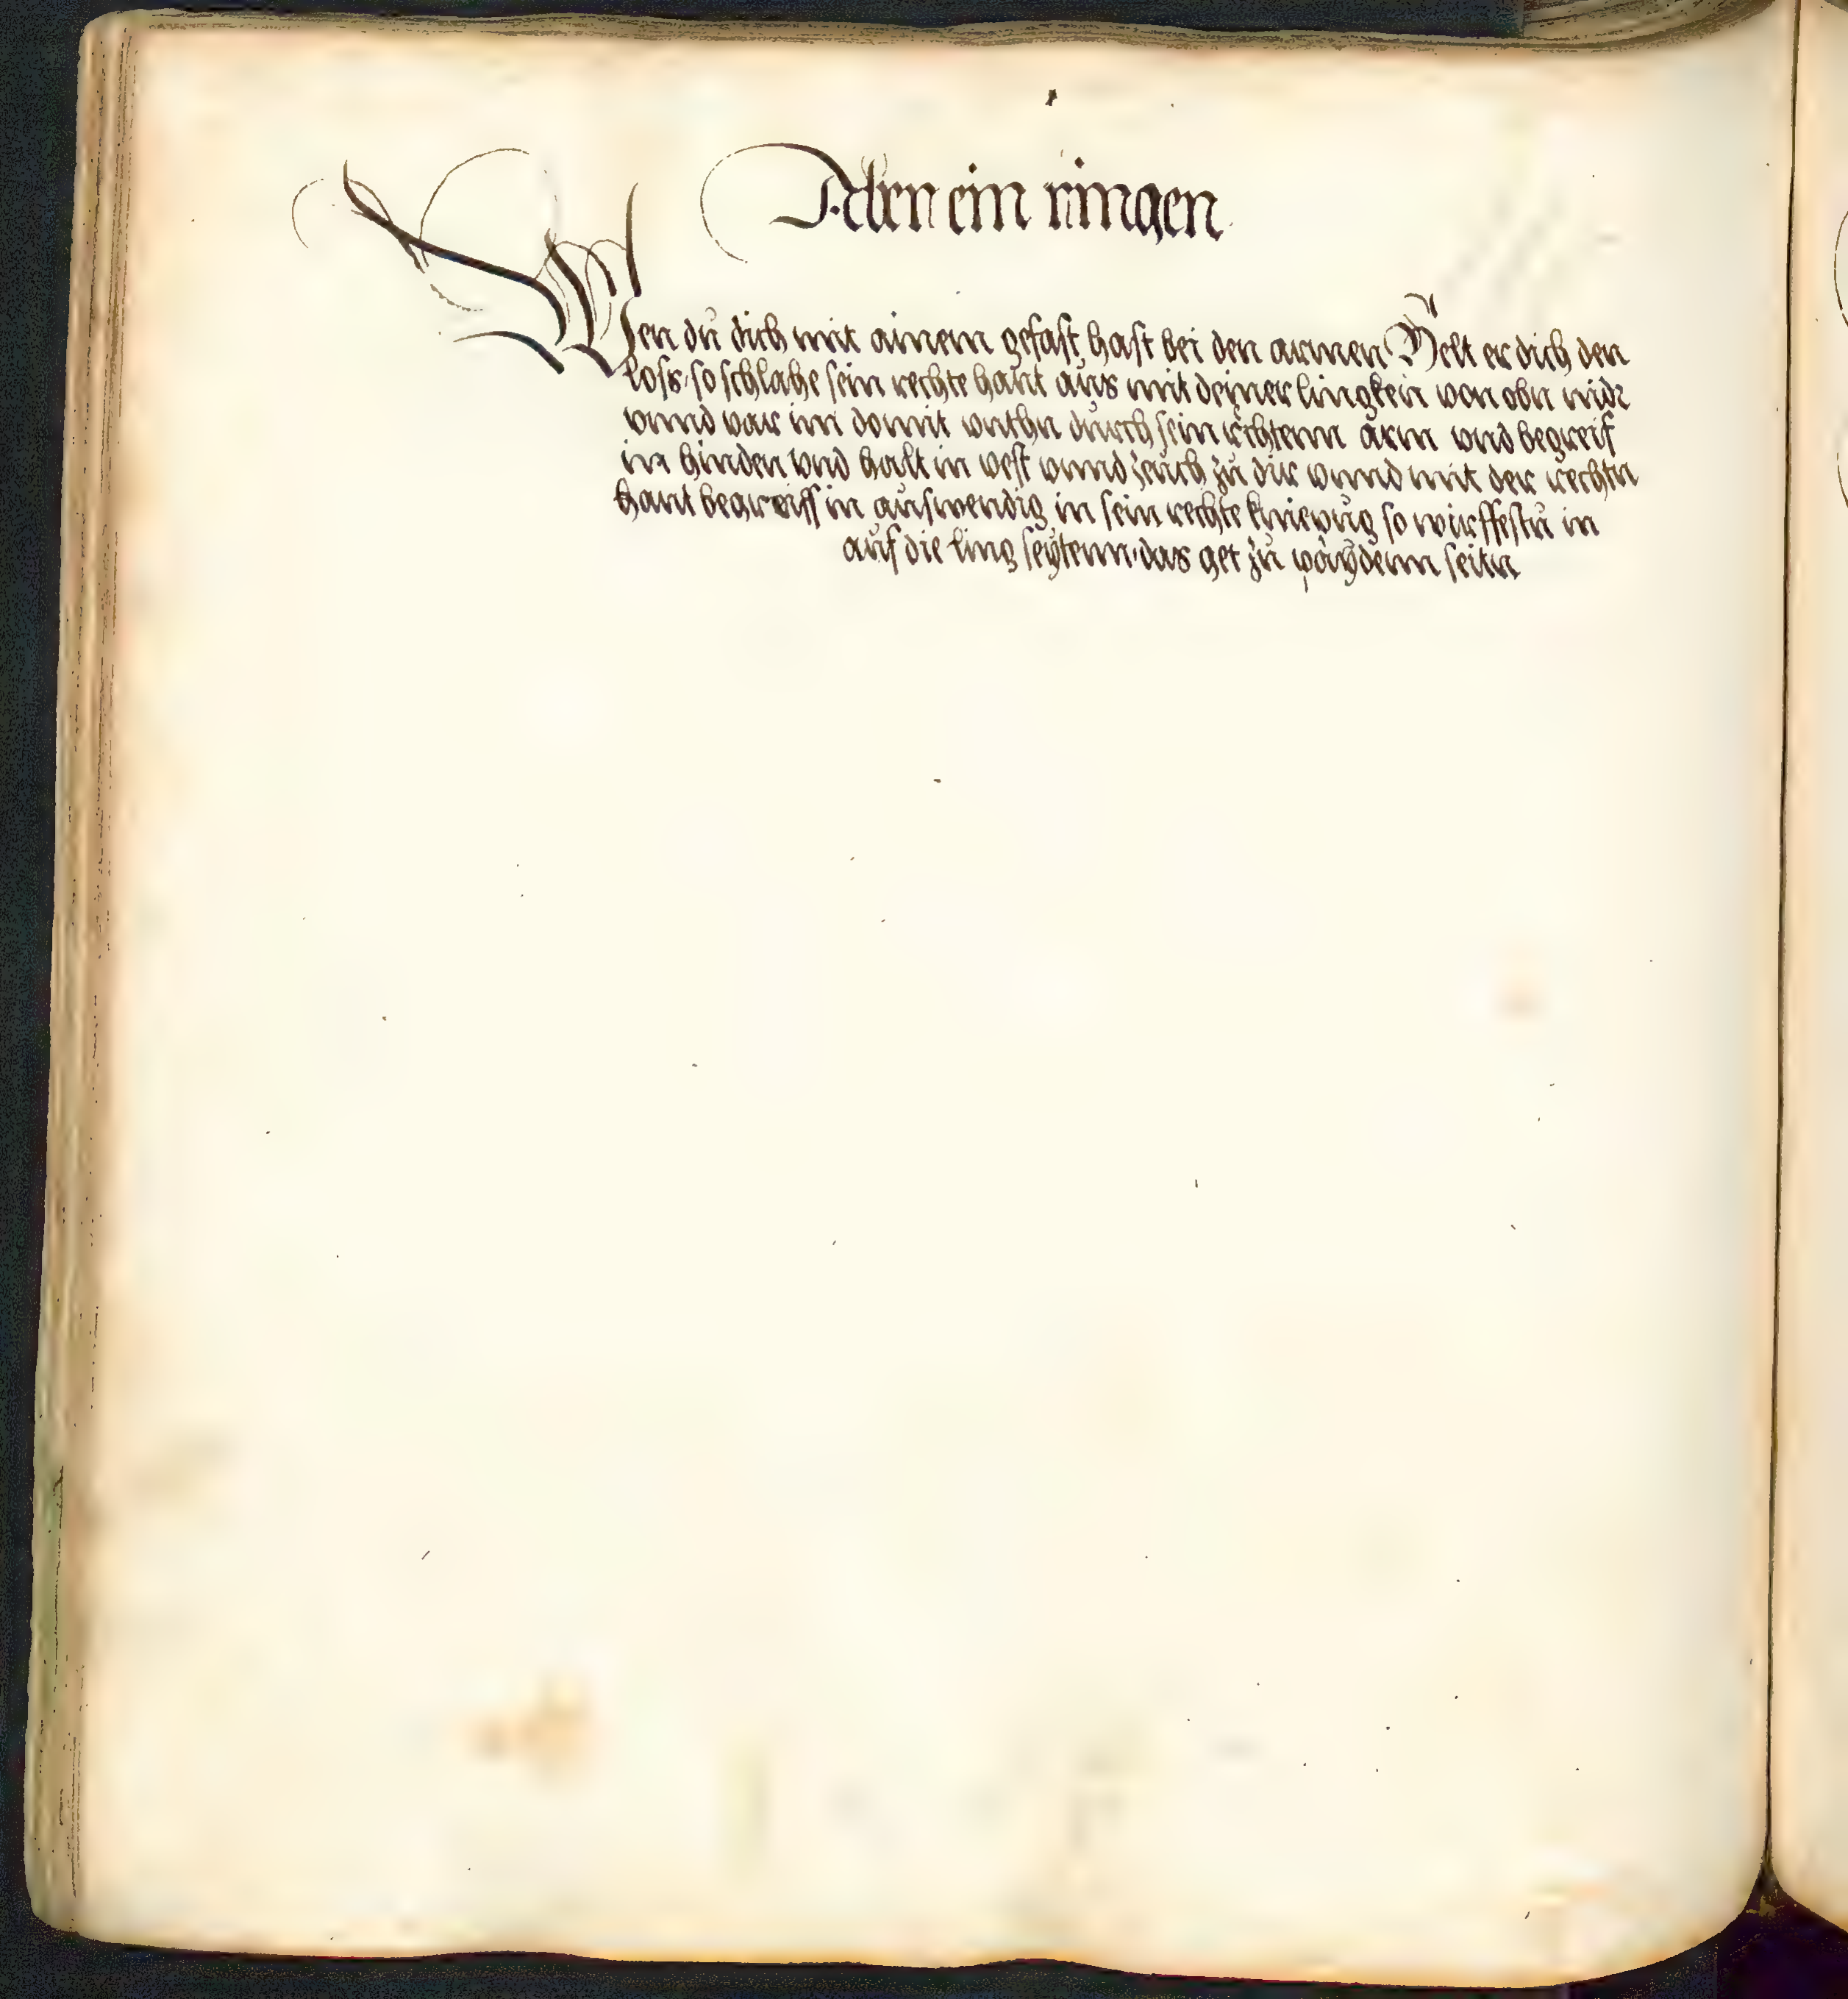 Aber ein ringen
Wen du dich mit ainem gefast hast bei den armen Helt er dich den
loss so schlahe sein rechte hant aus mit deiner lingkein von obn nidr
vnnd var im domit vnthn durch sein rechtenn arm vnd begreif
in hinden vnd halt in vest vnnd zeuch zu dir vnnd mit der rechtn
hant begreiff in auswendig in sein rechte kniepug so wirffestu in
auf die ling seytenn das get zu payden seitn